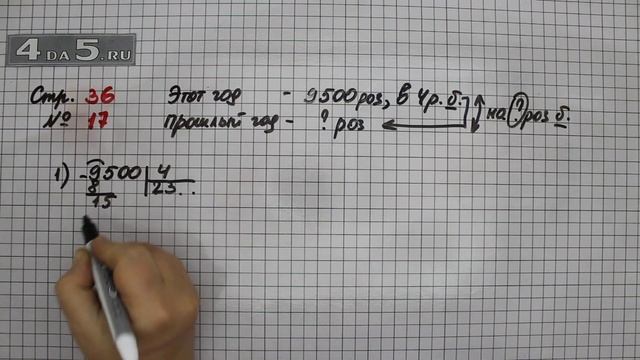 4DA5.RU
Стр. 36 Этот год - 9500 роз, в 4 р. б. на ? роз б.
№ 17 Прошлый год - ? роз
1) - 9500 | 4
8 23..
15